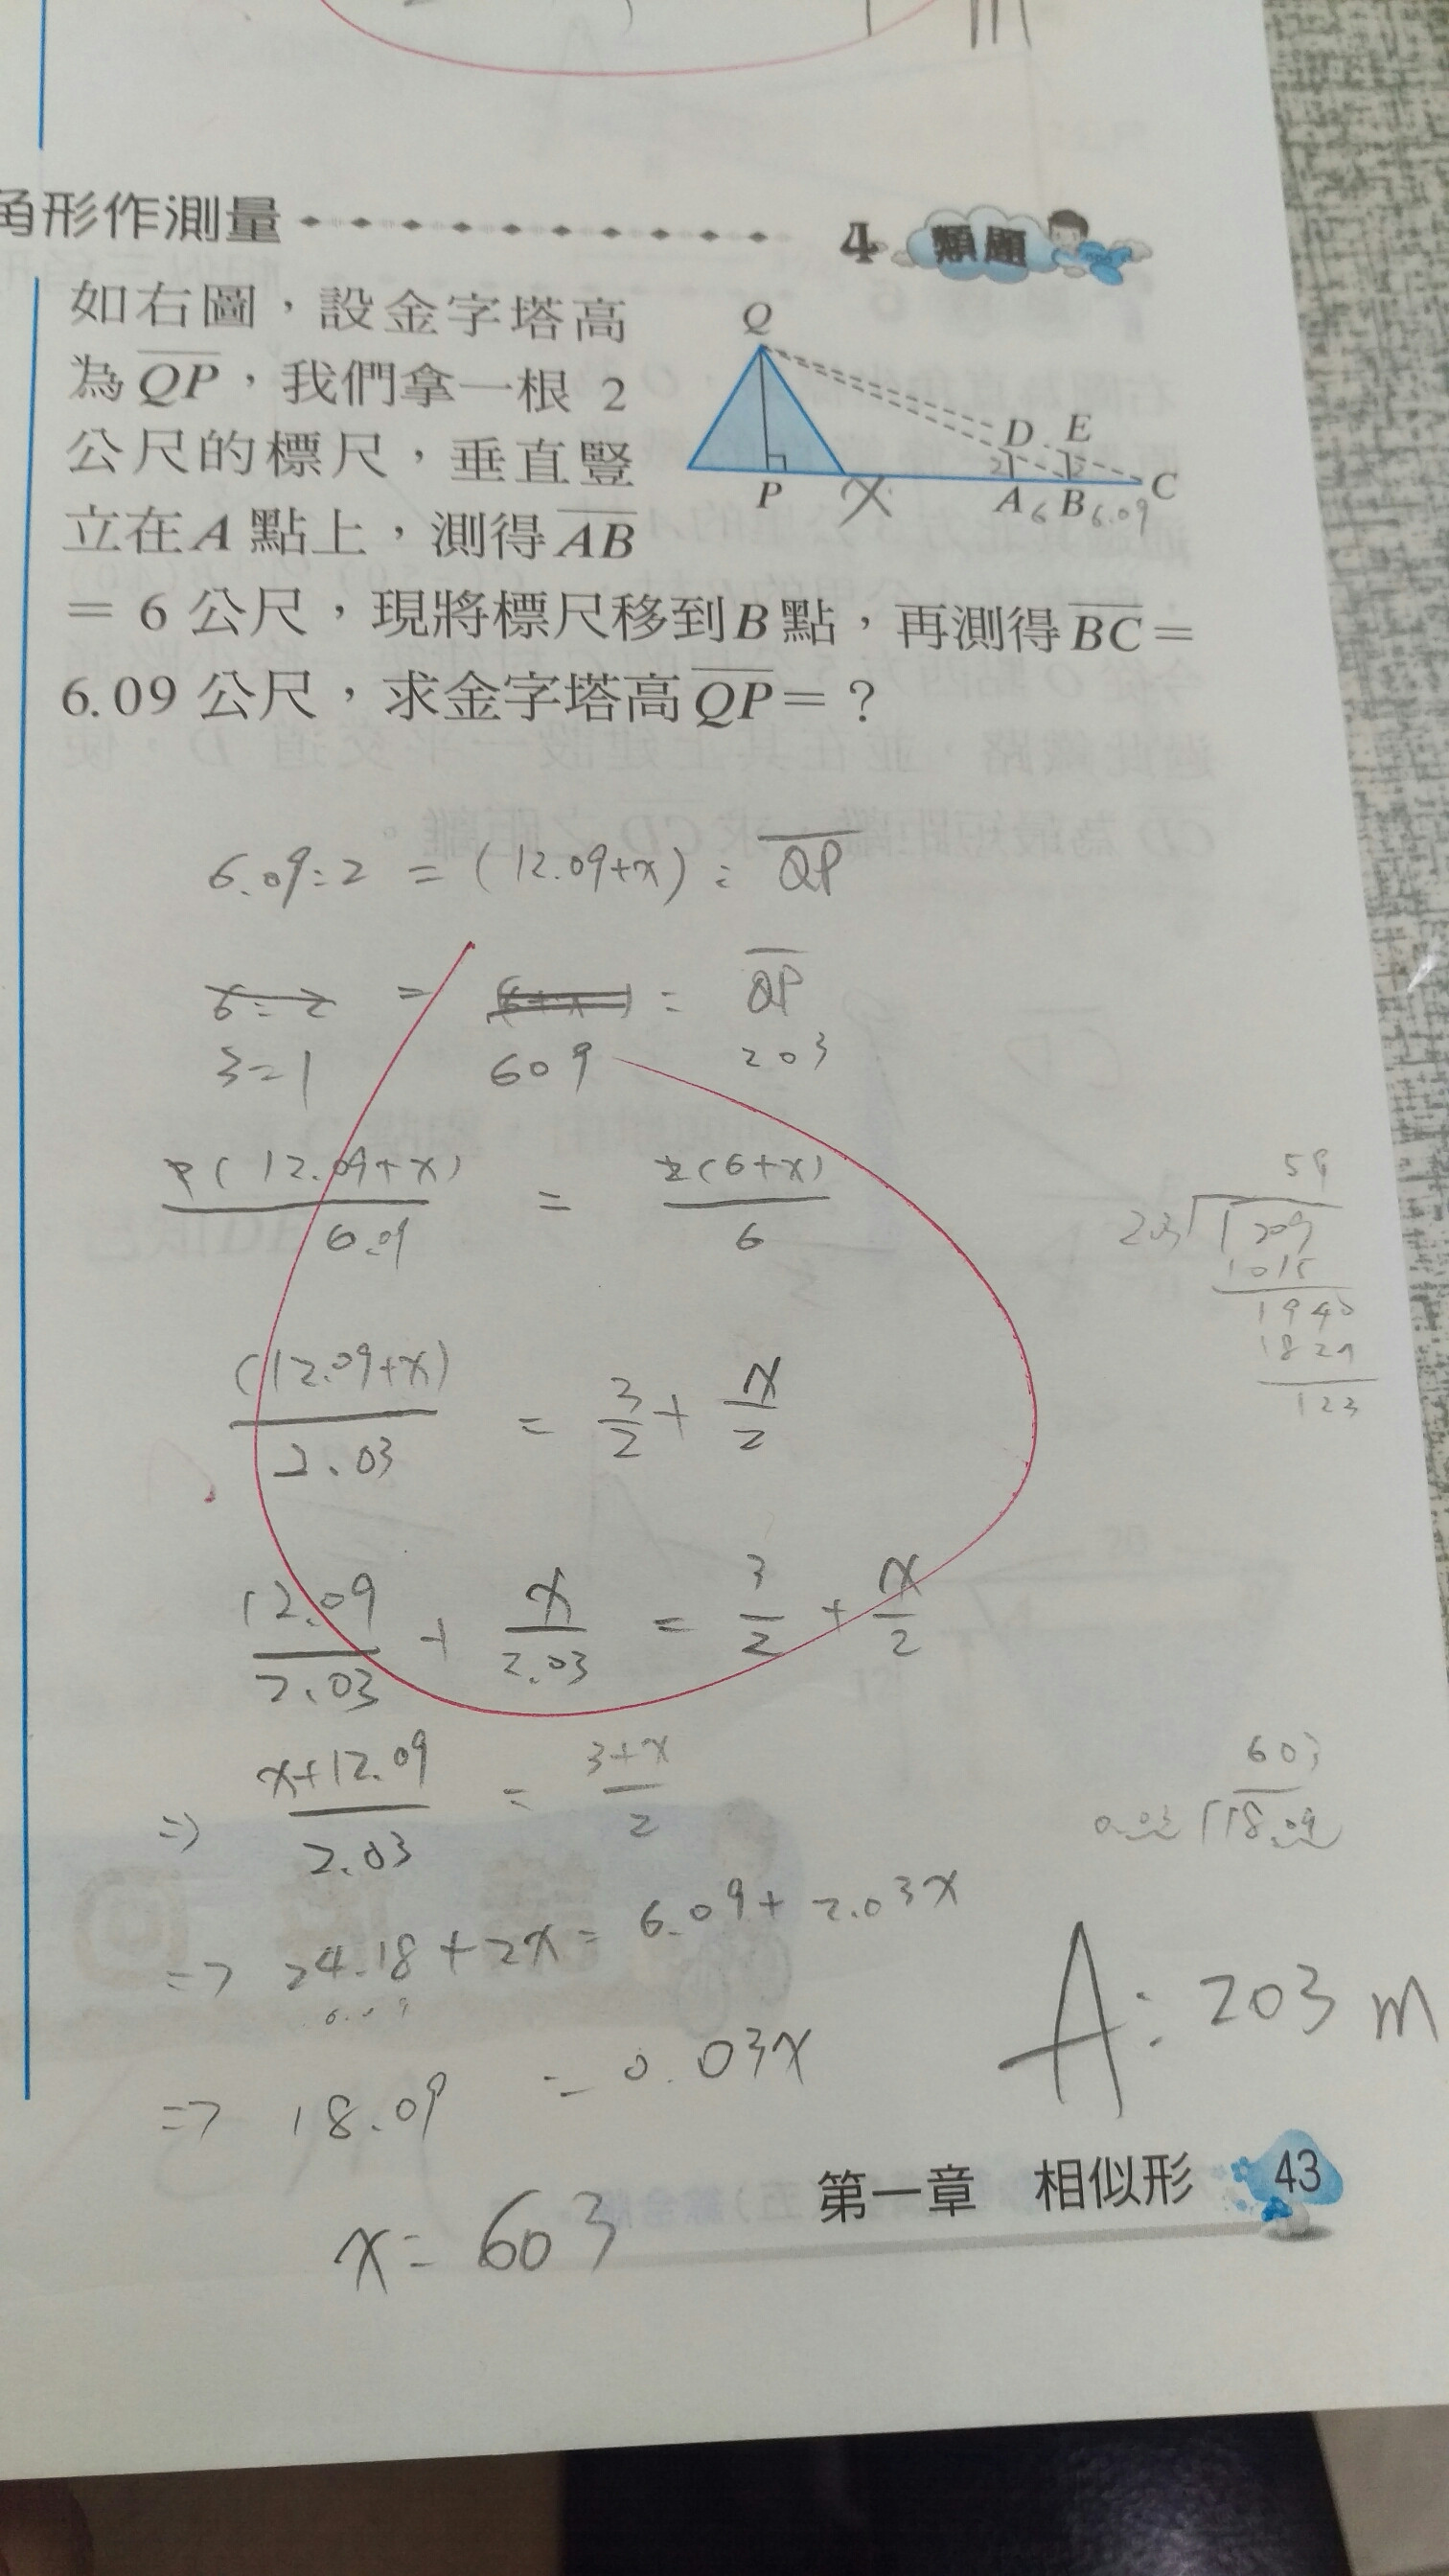 角形作測量
4 類題
如右圖，設金字塔高
為QP，我們拿一根 2
公尺的標尺，垂直豎
立在A點上，測得AB
= 6公尺，現將標尺移到B點，再測得BC=
6.09公尺，求金字塔高QP=？
Q
D E
2 2
P X A 6 B 6.09 C
6.09:2 = (12.09+x) : QP
= : QP
3=1 609 203
(12.09+x) / 6.09 = 2(6+x) / 6
59
203 1209
1015
1940
1827
123
(12.09+x) / 2.03 = 3/2 + x/2
12.09/2.03 + x/2.03 = 3/2 + x/2
=> x+12.09 / 2.03 = 3+x / 2
603
0.03 18.09
=> 24.18+2x = 6.09+2.03x
6.09
=> 18.09 = 0.03x
A: 203 m
x = 603
第一章 相似形 43